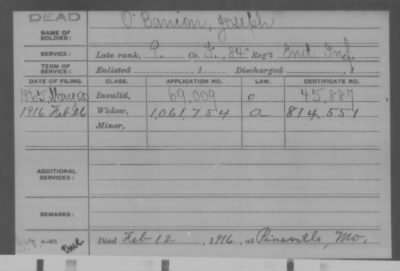 DEAD
NAME OF SOLDIER: O'Banion, Joseph
SERVICE: Late rank, P. Co. F, 84" Reg't Ind. Inf.
TERM OF SERVICE: Enlisted , 1 Discharged , 1
DATE OF FILING. CLASS. APPLICATION NO. LAW. CERTIFICATE NO.
1865 May 20 Invalid, 69,009 o 45,887
1916 Feb 26 Widow, 1,061,754 a 814,551
Minor,
ADDITIONAL SERVICES:
REMARKS:
Died Feb 12, 1916, at Mo.